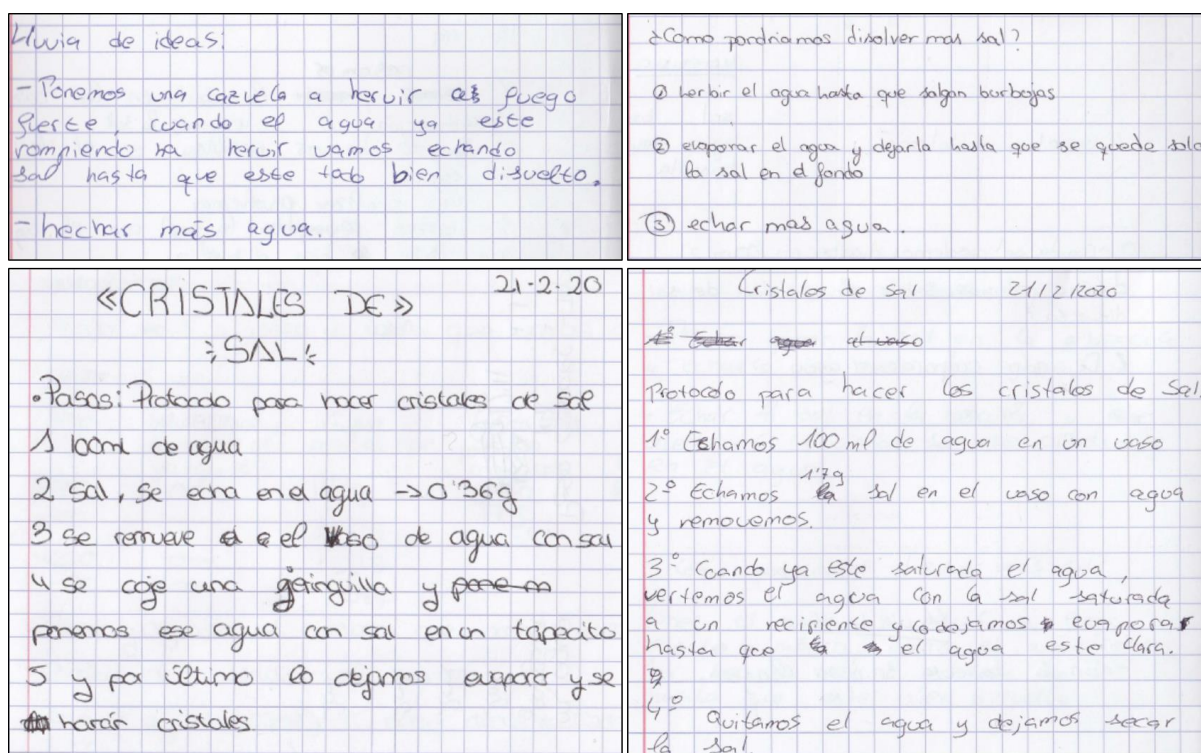 Lluvia de ideas:
- Ponemos una cazuela a hervir a fuego
fuerte, cuando el agua ya este
rompiendo ha hervir vamos echando
sal hasta que este todo bien disuelto.
- hechar más agua.
¿Como pordriamos disolver mas sal?
① herbir el agua hasta que salgan burbojas
② evaporar el agua y dejarla hasta que se quede solo
la sal en el fondo
③ echar mas agua.
21-2-20
«CRISTALES DE»
SAL
• Pasos: Protocolo para hacer cristales de sal
1 100ml de agua
2 sal, se echa en el agua -> 0'36g
3 se remueve el vaso de agua con sal
4 se coje una geringuilla y
ponemos ese agua con sal en un tapecito
5 y por último lo dejamos evaporar y se
harán cristales
Cristales de sal 21/2/2020
1º Echar agua al vaso
Protocolo para hacer los cristales de Sal
1º Echamos 100 ml de agua en un vaso
2º Echamos 1'79 sal en el vaso con agua
y removemos.
3º Cuando ya este saturada el agua,
vertemos el agua con la sal saturada
a un recipiente y lo dejamos evaporar
hasta que el agua este clara.
4º Quitamos el agua y dejamos secar
la sal.